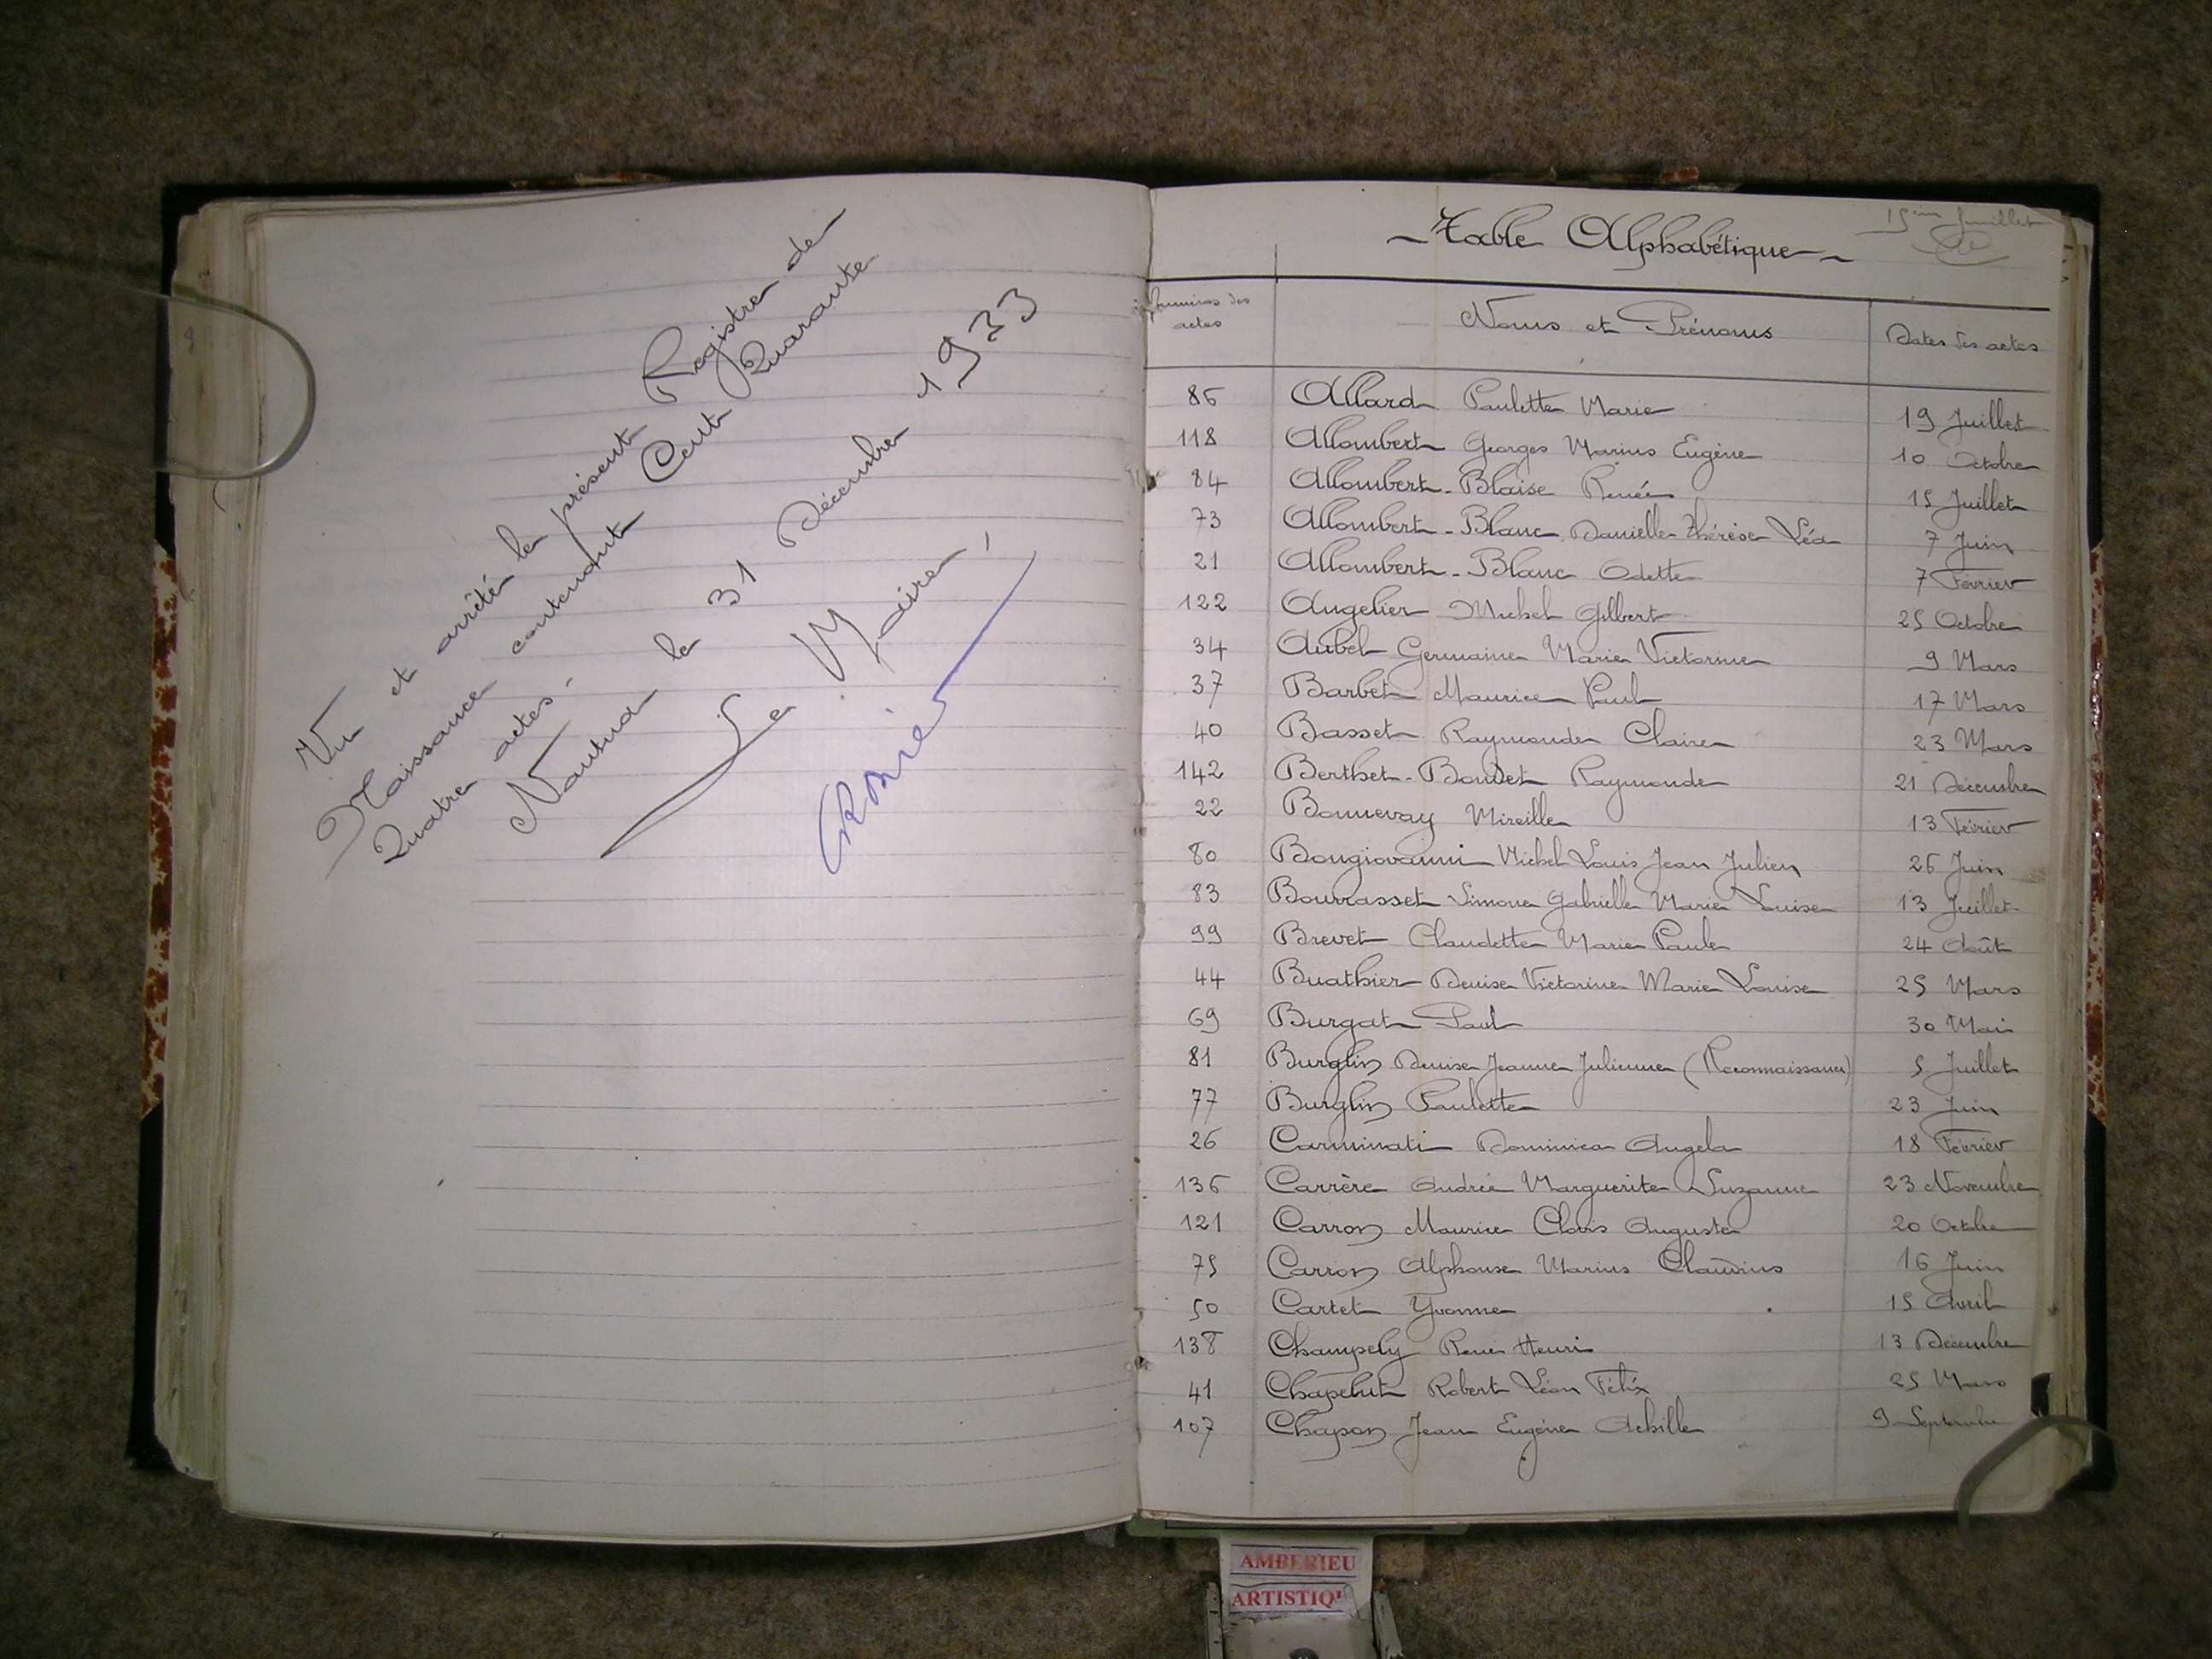 Vu et arrêté le présent Registre de
Naissance contenant Cent Quarante
Quatre actes.
Nantua le 31 Décembre 1933
Le Maire,
15ème feuillet
Table Alphabétique
Numéros des actes
Noms et Prénoms
Dates des actes
86 Allard Paulette Marie 19 Juillet
118 Allombert Georges Marius Eugène 10 Octobre
84 Allombert-Blaise Renée 15 Juillet
73 Allombert-Blanc Danielle Thérèse Léa 7 Juin
21 Allombert-Blanc Odette 7 Février
122 Augelier Michel Gilbert 25 Octobre
34 Aubel Germaine Marie Victorine 9 Mars
37 Barbet Maurice Paul 17 Mars
40 Basset Raymonde Claire 23 Mars
142 Berthet-Bondet Raymonde 21 Décembre
22 Bonnevay Mireille 13 Février
80 Bongiovanni Michel Louis Jean Julien 26 Juin
83 Bourrasset Simone Gabrielle Marie Louise 13 Juillet
99 Brevet Claudette Marie Paule 24 Août
44 Buathier Denise Victorine Marie Louise 25 Mars
69 Burgat Paul 30 Mai
81 Burglin Denise Jeanne Julienne (Reconnaissance) 5 Juillet
77 Burglin Paulette 23 Juin
26 Carminati Dominica Angela 18 Février
136 Carrère Andrée Marguerite Suzanne 23 Novembre
121 Carron Maurice Clovis Auguste 20 Octobre
75 Carron Alphonse Marius Claudius 16 Juin
50 Cartet Yvonne 15 Avril
138 Champely René Henri 13 Décembre
41 Chapelut Robert Léon Félix 25 Mars
107 Chapon Jean Eugène Achille 9 Septembre
AMBERIEU
ARTISTIQU